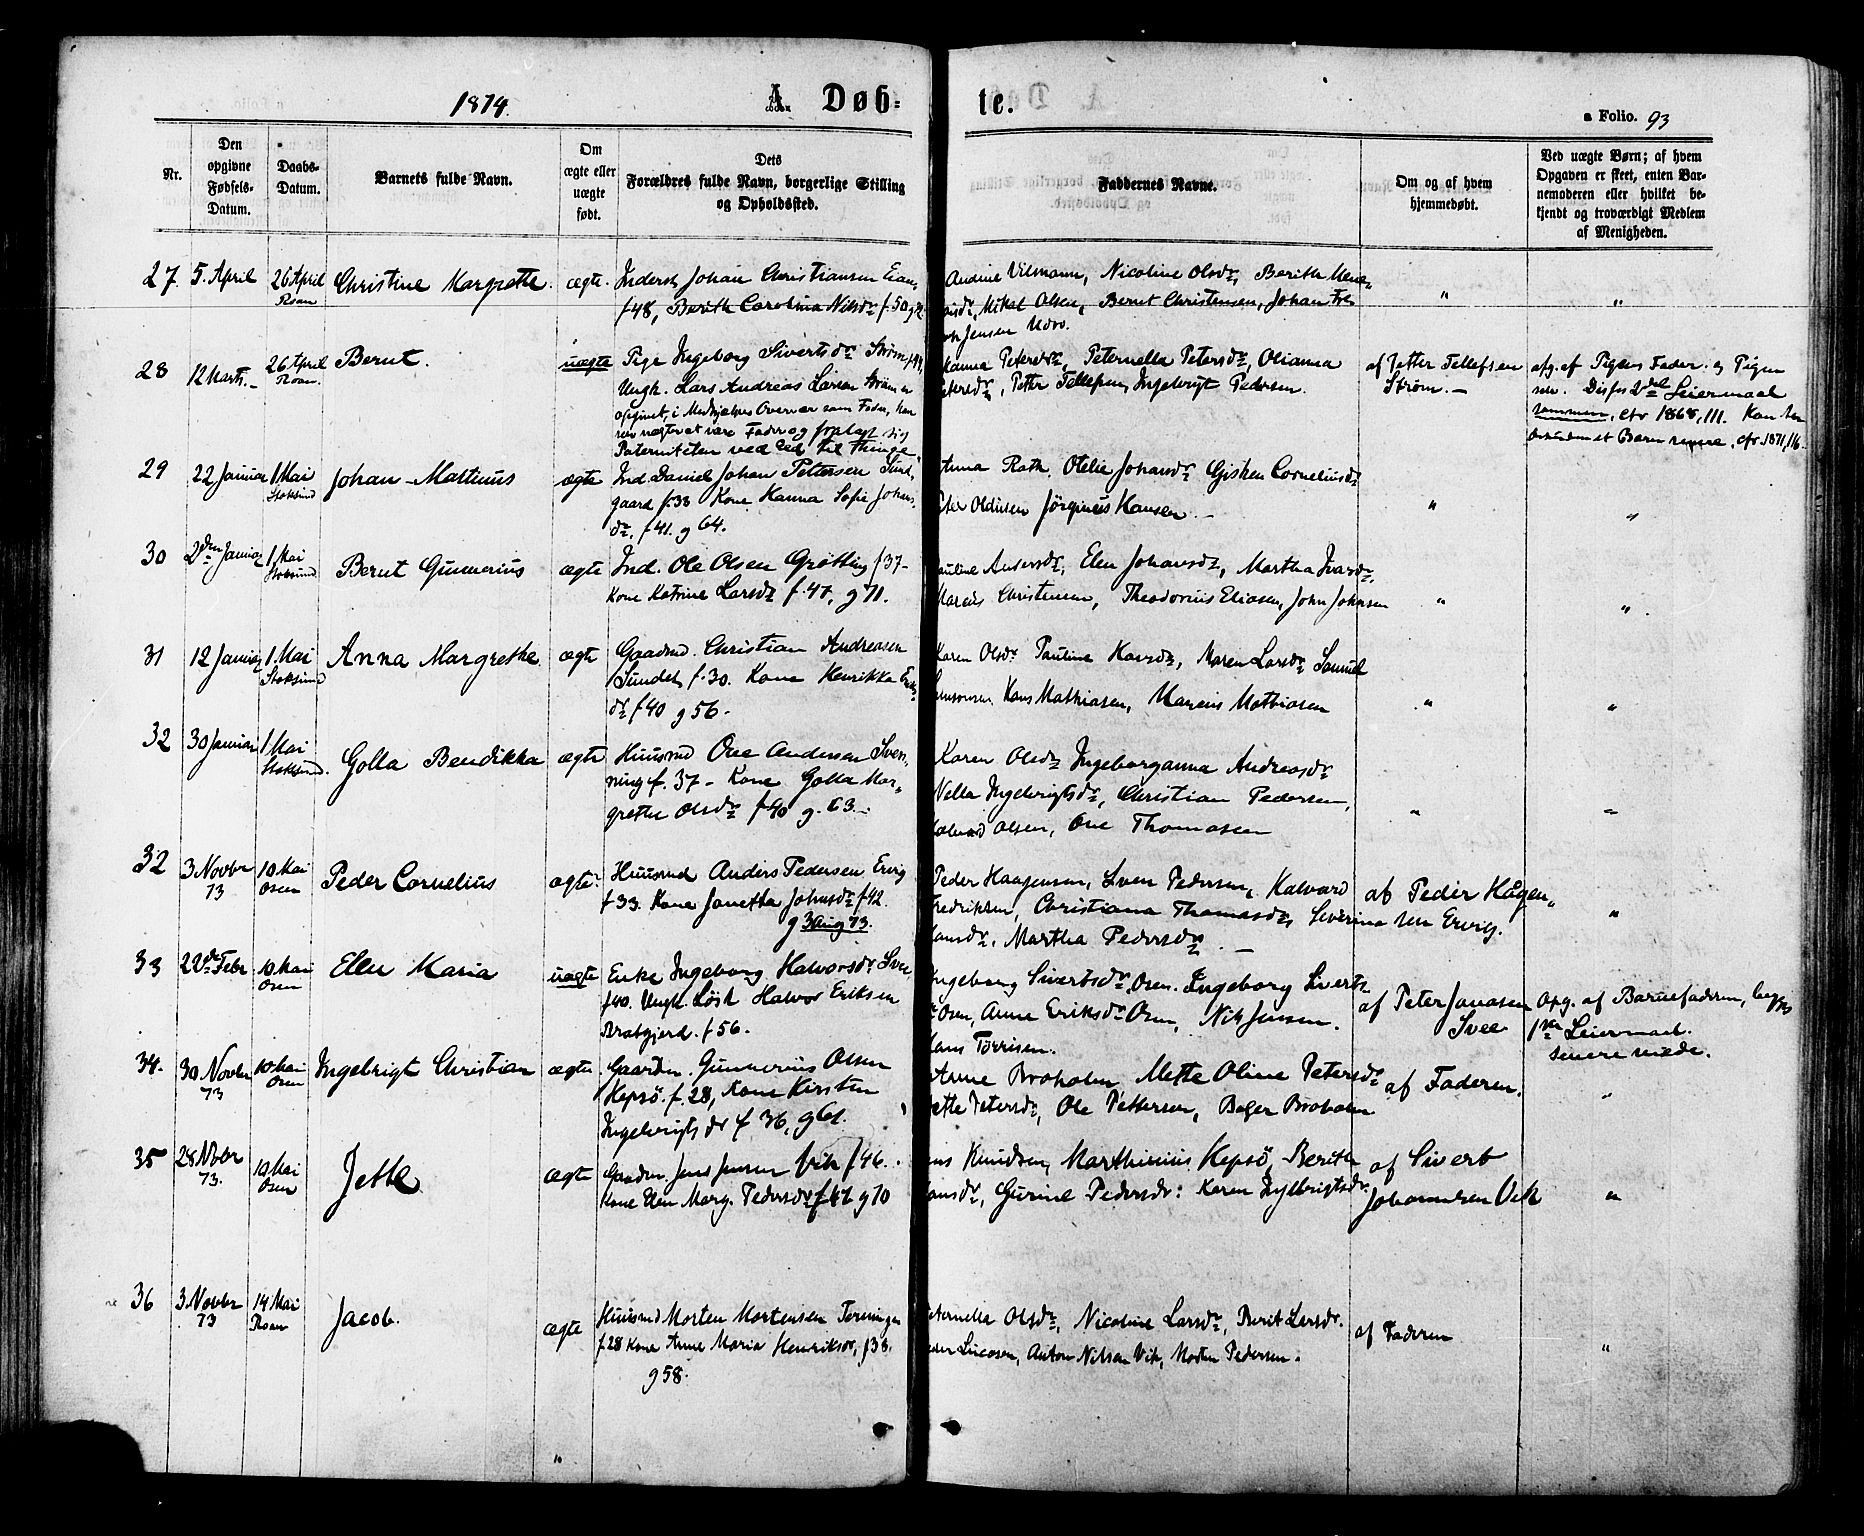 1874.
A. Døb-
te.
a Folio. 93
Nr.
Den opgivne Fødsels-Datum.
Daabs-Datum.
Barnets fulde Navn.
Om ægte eller uægte født.
Dets Forældres fulde Navn, borgerlige Stilling og Opholdssted.
Faddernes Navne.
Om og af hvem hjemmedøbt.
Ved uægte Børn; af hvem Opgaven er skeet, enten Barnemoderen eller hvilket bekjendt og troværdigt Medlem af Menigheden.
27. 5. April 26 April Roan Christine Margrethe. ægte. Inderst Johan Christiansen
f 48, Berith Carolina Nilsdr f. 50
Andine Vilmann, Nicoline Olsdr, Berith
Mikal Olsen, Bernt Christensen, Johan
Jensen
28 12 Marts.- 26 April Roan. Bernt. uægte Pige Ingeborg Sivertsdr Strøm f 44,
Ungk. Lars Andreas Larsen Strøm er
opgivet, i Medhjælpes Overvær som Fader, han
nægter at være Fader og
Paterniteten ved Eed til Thinge.
Hanna Petersdr, Peternella Petersdr, Olianna
Petter Tellefsen, Ingebrigt Pedersen.
af Petter Tellefsen
Strøm. -
opg. af Pigens Fader. og Pigen
selv. Disses 2det Leiermaal
sammen, cfr 1868, 111.
Barn cfr. 1871, 116.
29 22 Januar 1 Mai Stoksund Johan Martinus ægte Ind. Daniel Johan Pettersen
gaard f. 33 Kone Hanna Sofie Johans
dr. f 41. g 64.
Anna Roth. Otelie Johansdr Gjisken Corneliusdr
Peter Oldinsen Jørginus Hansen -
30 2den Januar 1 Mai Stoksund Bernt Gunnerius ægte Ind. Ole Olsen Grøtting f 37-
Kone Katrine Larsdr f. 47, g 71.
Pauline Andersdr, Elen Johansdr, Martha Ivarsdr,
Marcus Christensen, Theodorius Eliasen, John Johnsen
31 12 Januar 1 Mai Stoksund Anna Margrethe ægte Gaardmd. Christian Andreasen
Sundet f. 30. Kone Henrikka
dr f 40 g 56.
Karen Olsdr Pauline Hansdr, Maren Larsdr Samuel
Hans Mathiasen, Marius Mathiasen
32 30 Januar 1 Mai Stoksund. Golla Bendikka ægte Huusmd Ove Andersen Sven
ning f. 37 - Kone Golla Mar-
grethe Olsdr f 40 g. 63. -
Karen Olsdr Ingeborganna Andreasdr
Nella Ingebrigtsdr, Christian Pedersen,
Halvard Olsen, Ove Thomasen
32 3 Novbr 73 10 Mai Osen Peder Cornelius ægte Huusmd Anders Pedersen Ervig
f 33. Kone Janetta Johnsdr f 42.
g 3 Aug 73.
Peder Haagensen, Sven Pedersen, Halvard
Fredriksen, Christiana Thomasdr, Severina
Hansdr, Martha Pedersdr -
af Peder Hågen-
sen Ervig.
33 22de Febr 10 Mai Osen Elen Maria uægte Enke Ingeborg Halvorsdr Svee,
f 40. Ungk. Løsk Halvor Eriksen
Bratgjerd. f 56.
Ingeborg Sivertsdr Osen. Ingeborg Siverts
dr Osen, Anne Eriksdr Osen, Nils Jensen.
Hans Torrisen.
af Peter Janasen
Svee
Opg. af Barnefaderen, begges
1ste Leiermaal.
34. 30 Novbr 73 10 Mai Osen Ingebrigt Christian ægte Gaardm. Gunnerius Olsen
Hepsø. f. 28, Kone Kirsten
Ingebrigtsdr f 36, g 61.
Anne Broholm Mette Oline Petersdr
Jette Petersdr, Ole Pettersen, Boger Broholm
af Faderen.
35 28 Novbr 73. 10 Mai Osen Jette ægte Gaardm. Jens Jensen Vik f 46.
Kone Elen Marg. Pedersdr f 47 g 70
Knudsen, Marthinius Hepsø, Berith
Hansdr, Gurine Pedersdr: Karen Ingebrigtsdr.
af Sivert
Johannesen Vik
36 3 Novbr 73 14 Mai Roan Jacob. ægte Huusmd Morten Mortensen Terningen
f. 28 Kone Anne Maria Henriksdr, f 38.
g 58.
Peternella Olsdr, Nicoline Larsdr, Berit Larsdr.
Peder Lucasen, Anton Nilsen Vik, Morten Pedersen.
af Faderen